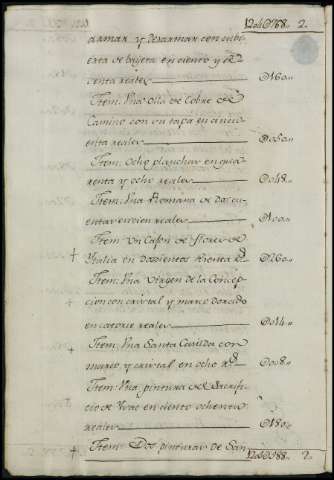 12 d@768.. 2.
armar y desarmar con cubi
erta de baqueta en ciento y ses
centa reales @160..
Item: Una Olla de Cobre de
Camino con su tapa en cincu
enta reales @050..
Item: Ocho planchas en qua
renta y ocho reales @048..
Item: Una Romana de dos cu
entas en cien reales @100..
Item Un Cajon de flores de
Italia en doscientos sesenta rs @260..
Item: Una Virgen de la Concep
cion con cristal y marco dorado
en catorce reales @014..
Item: Una Santa Casilda con
marco y cristal en ocho rs @008..
Item: Una pintura del Sacrifi
cio de Ysac en ciento ochenta
reales @180..
Item: Dos pinturas de San
2..